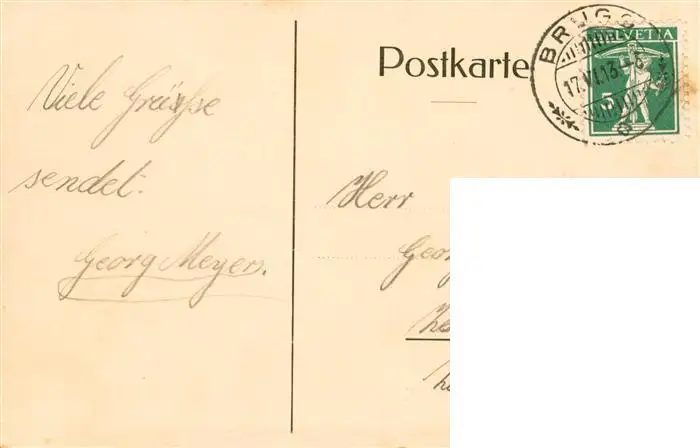 Viele Grüsse
sendet:
Georg Meyer.
Postkarte
BRUGG
17.VI.13
HELVETIA
5
Herr